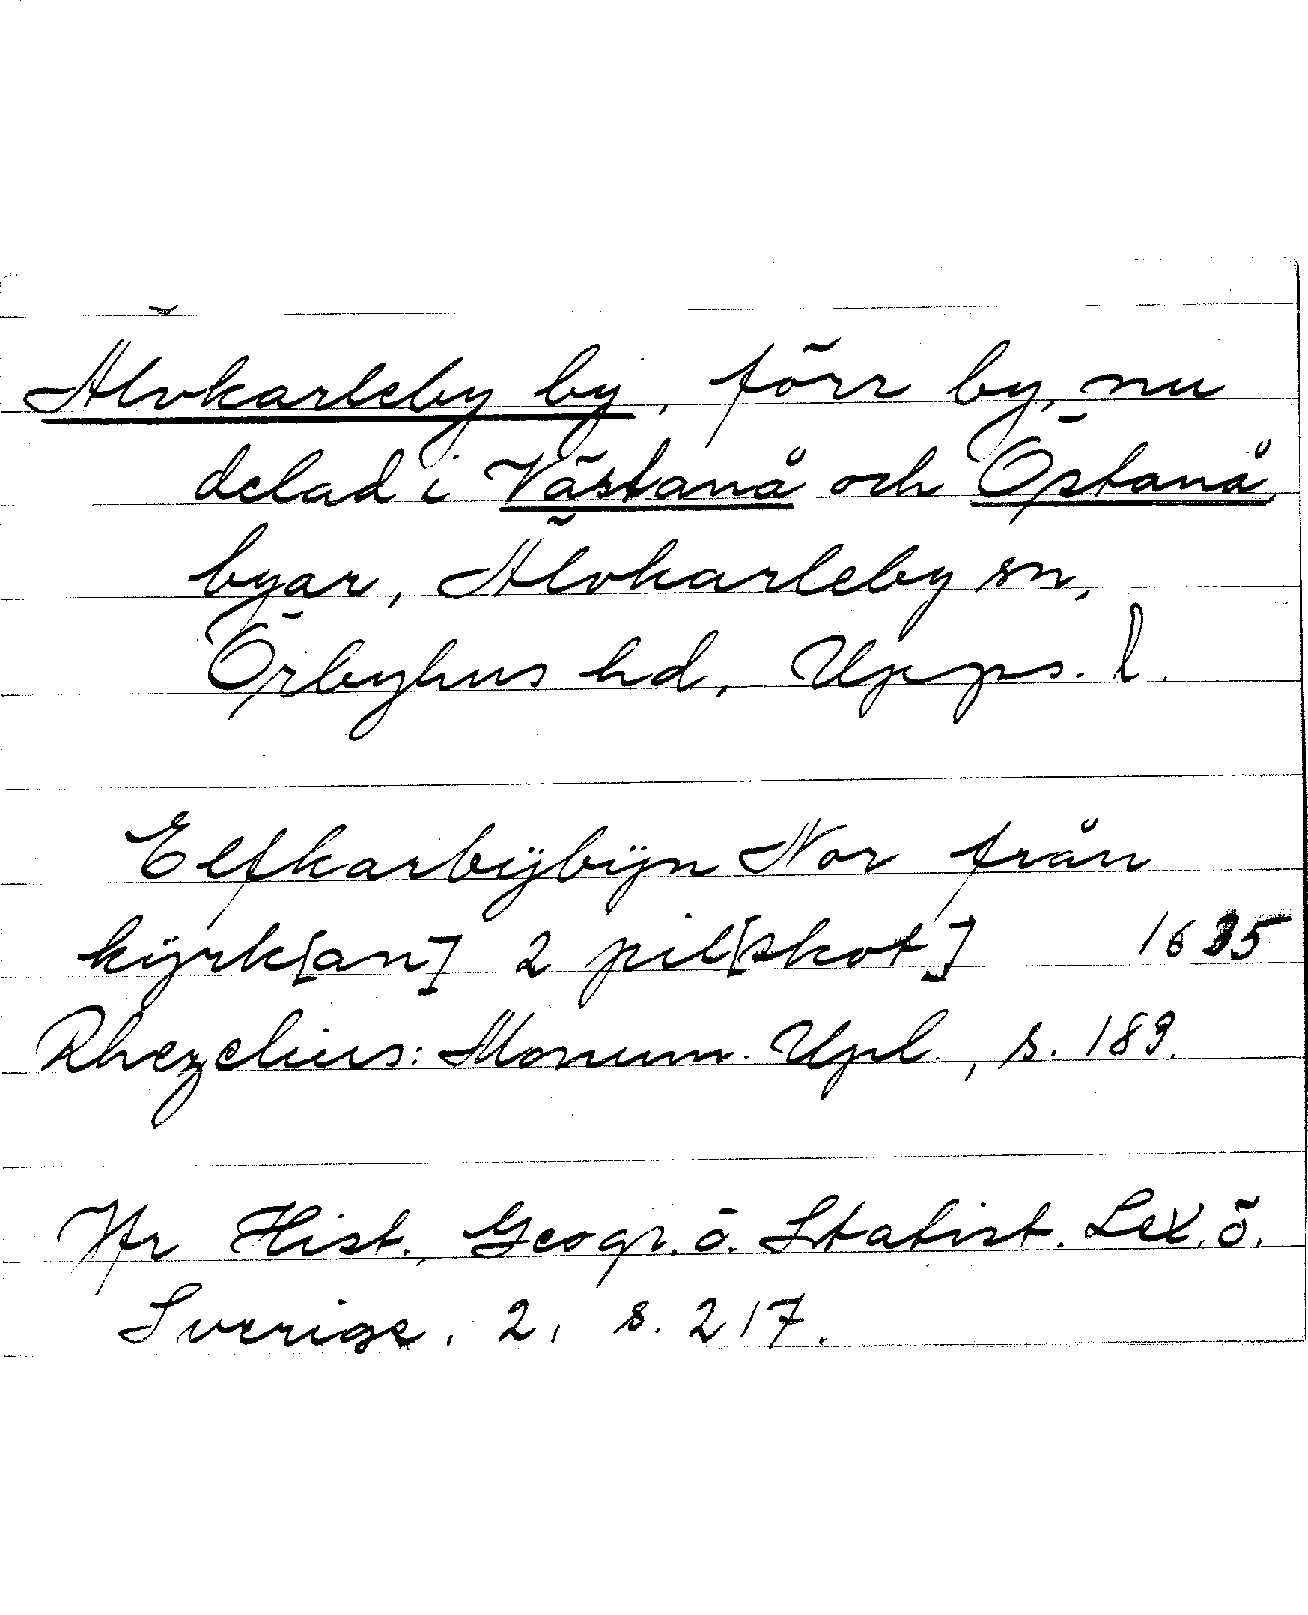 Älvkarleby by, förr by, nu
delad i Västanå och Östanå
byar, Älvkarleby sn,
Örbyhus hd, Upps. l.
Elfkarbÿbÿn Nor från
kÿrk[an] 2 pil[skot] 1635
Rhezelius: Monum. Upl., s. 189.
Jfr Hist., Geogr. o. Statist. Lex. ö.
Sverige. 2, s. 217.